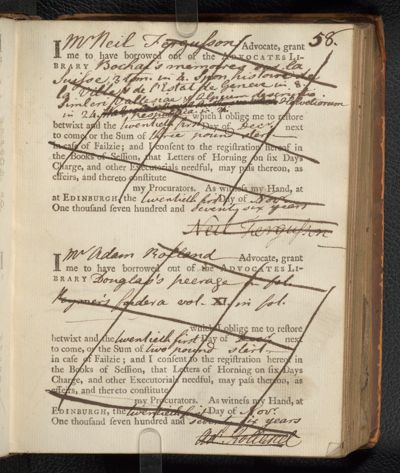 58.
I Mr Neil Fergusson Advocate, grant
me to have borrowed out of the ADVOCATES LI-
BRARY Bochat's memoires sur la
Suisse, 3 tom. in 4. Spon histoire de
la Ville & de l'Estat de Geneve in 8.
Simleri Vallesiae & Alpium descriptio
in 24. Helvetiorum
Respublica in 24. which I oblige me to restore
betwixt and the twentieth first Day of Decr. next
to come, or the Sum of three pound sterl.
in case of Failzie; and I consent to the registration hereof in
the Books of Session, that Letters of Horning on six Days
Charge, and other Executorials needful, may pass thereon, as
effeirs, and thereto constitute
my Procurators. As witness my Hand, at
at EDINBURGH, the twentieth first Day of Novr.
One thousand seven hundred and seventy six years
Neil Fergusson
I Mr Adam Rolland Advocate, grant
me to have borrowed out of the ADVOCATES LI-
BRARY Douglas's peerage in fol.
Rymer's foedera vol. XI. in fol.
which I oblige me to restore
betwixt and the twentieth first Day of Decr. next
to come, or the Sum of two pound sterl.
in case of Failzie; and I consent to the registration hereof in
the Books of Session, that Letters of Horning on six Days
Charge, and other Executorials needful, may pass thereon, as
effeirs, and thereto constitute
my Procurators. As witness my Hand, at
EDINBURGH, the twentieth first Day of Novr.
One thousand seven hundred and seventy six years
Ad. Rolland